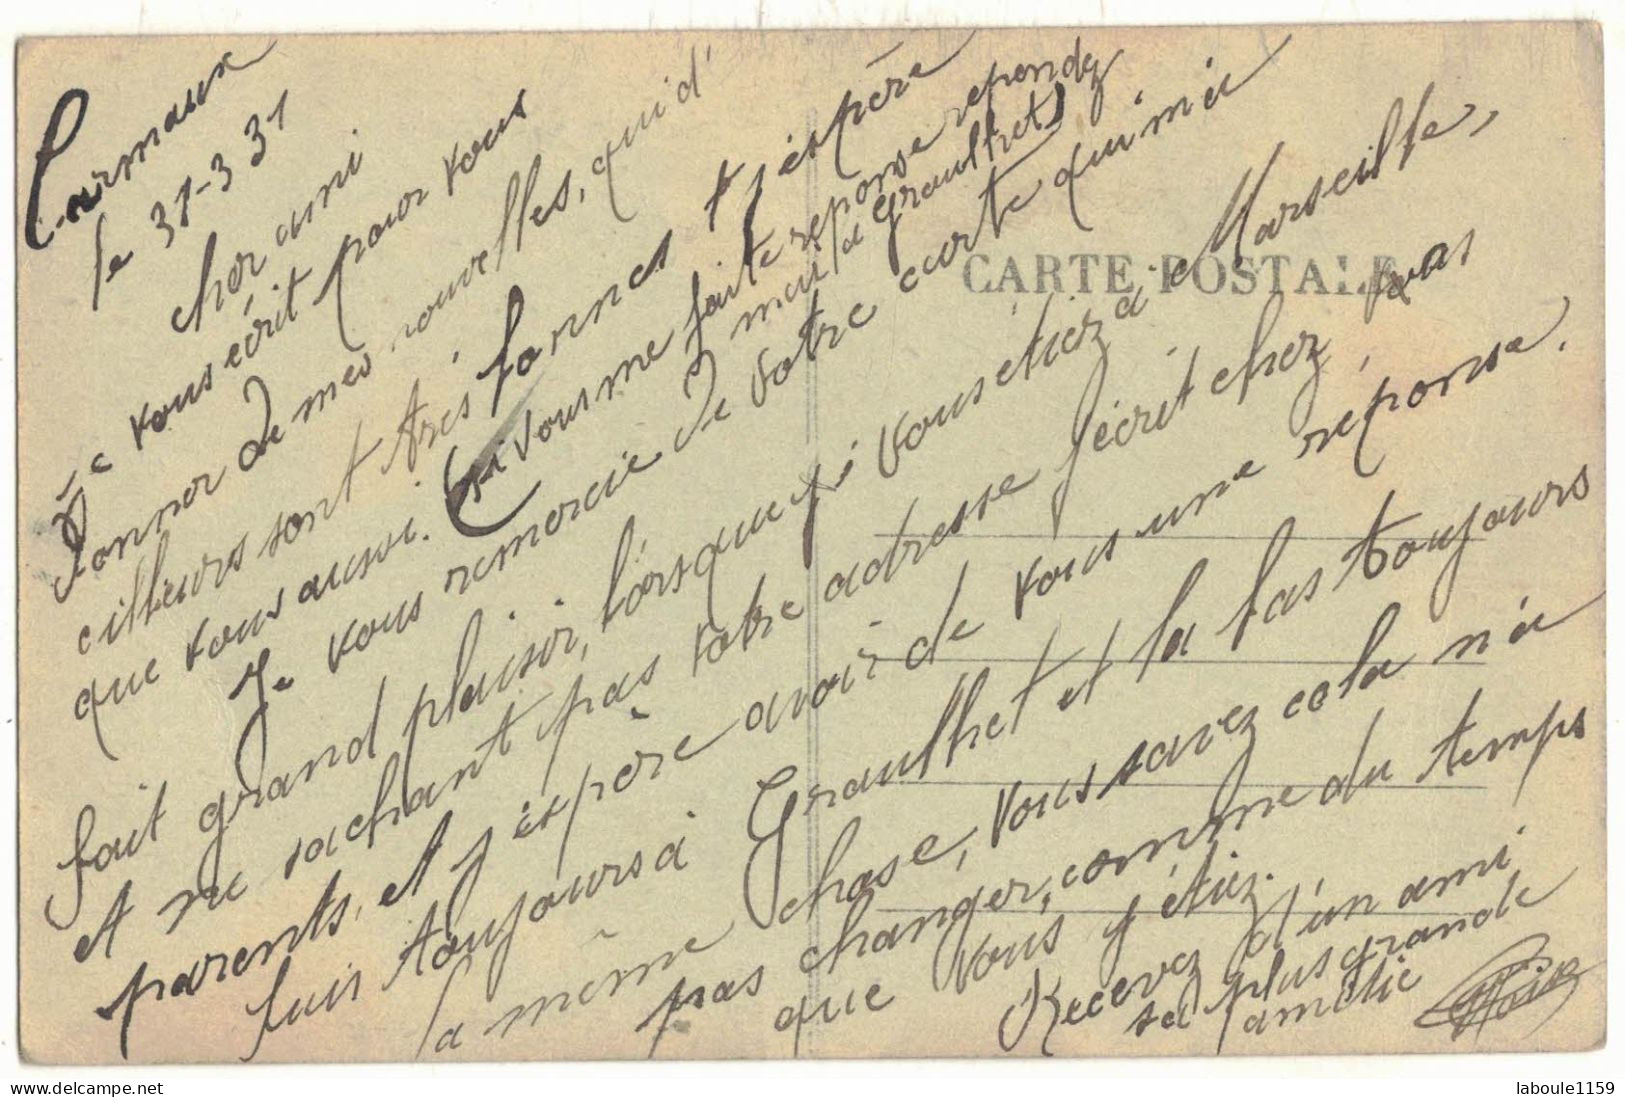 Carmaux
le 31-3 31
cher ami
Je vous écrit pour vous
donner de mes nouvelles, qui d'
ailleurs sont très bonnes et j'éspère
que vous aussi. Si vous me faite reponse repondez
moi à Graulhet)
Je vous remercie de votre carte qui m'a
fait grand plaisir, lorsque vous étiez à Marseille,
et ne sachant pas votre adresse j'écrit chez vos
parents, et j'éspère avoir de vous une réponse.
suis toujours à Graulhet et la bas toujours
la même chose, vous savez cela n'a
pas changer, comme du temps
que vous y étiez.
Recevez d'un ami
sa plus grande
amitié
CARTE POSTALE
laboule1159